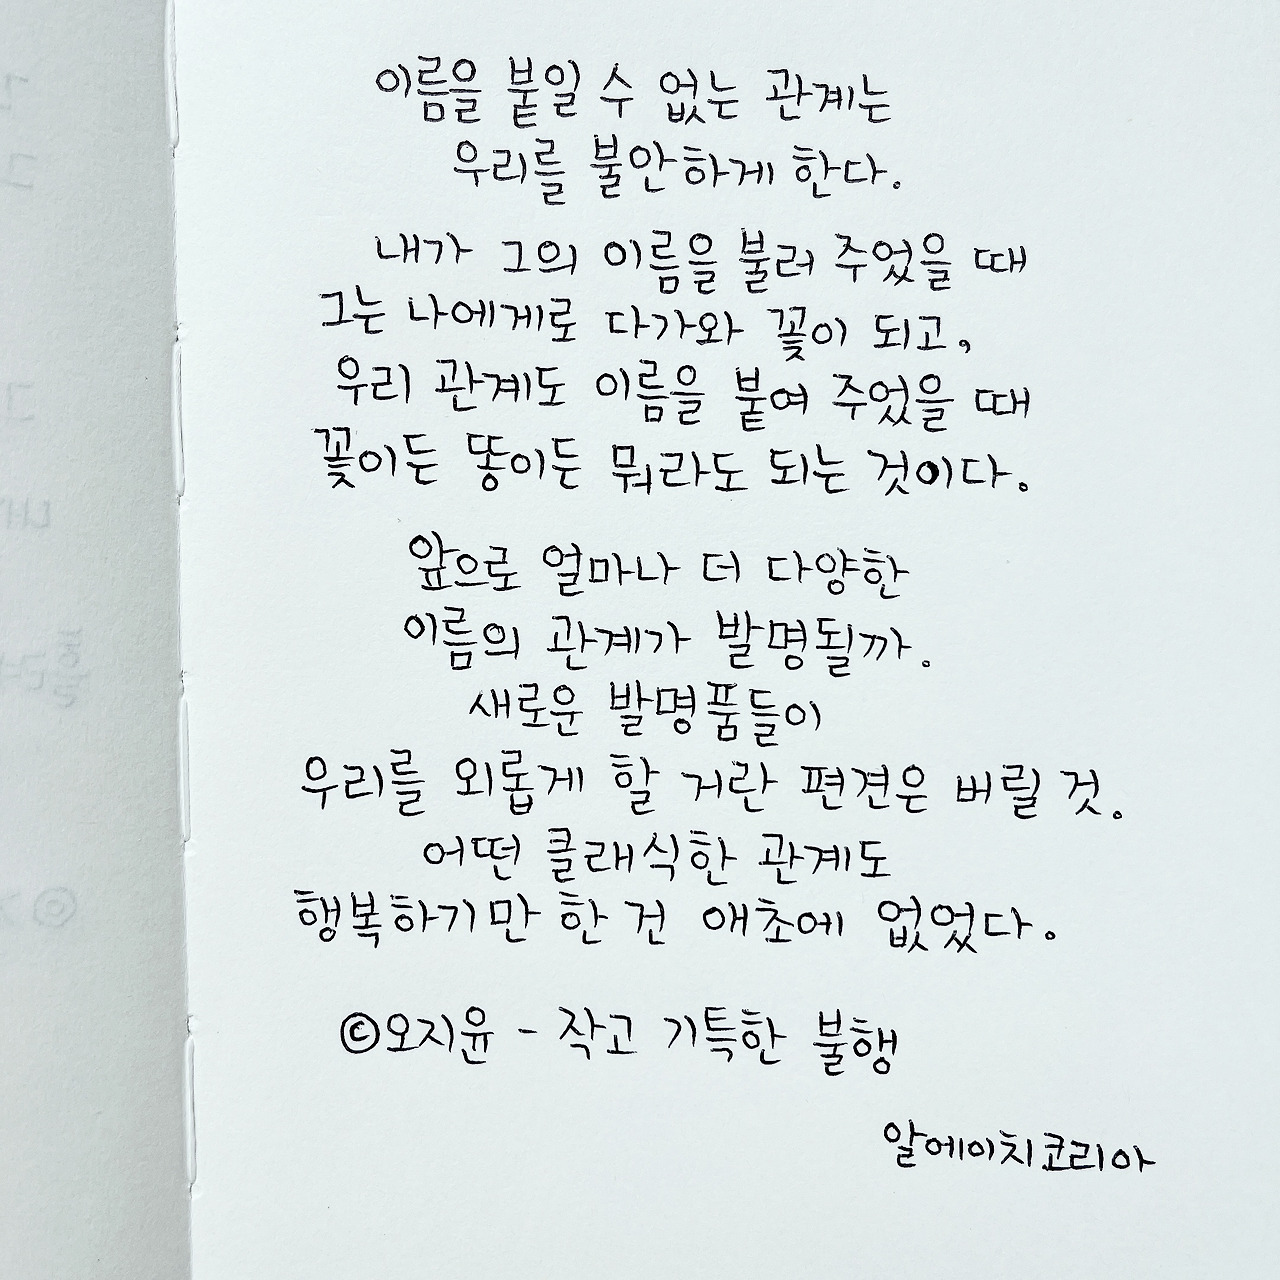 이름을 붙일 수 없는 관계는
우리를 불안하게 한다.
내가 그의 이름을 불러 주었을 때
그는 나에게로 다가와 꽃이 되고,
우리 관계도 이름을 붙여 주었을 때
꽃이든 똥이든 뭐라도 되는 것이다.
앞으로 얼마나 더 다양한
이름의 관계가 발명될까.
새로운 발명품들이
우리를 외롭게 할 거란 편견은 버릴 것.
어떤 클래식한 관계도
행복하기만 한 건 애초에 없었다.
©오지윤 - 작고 기특한 불행
알에이치코리아